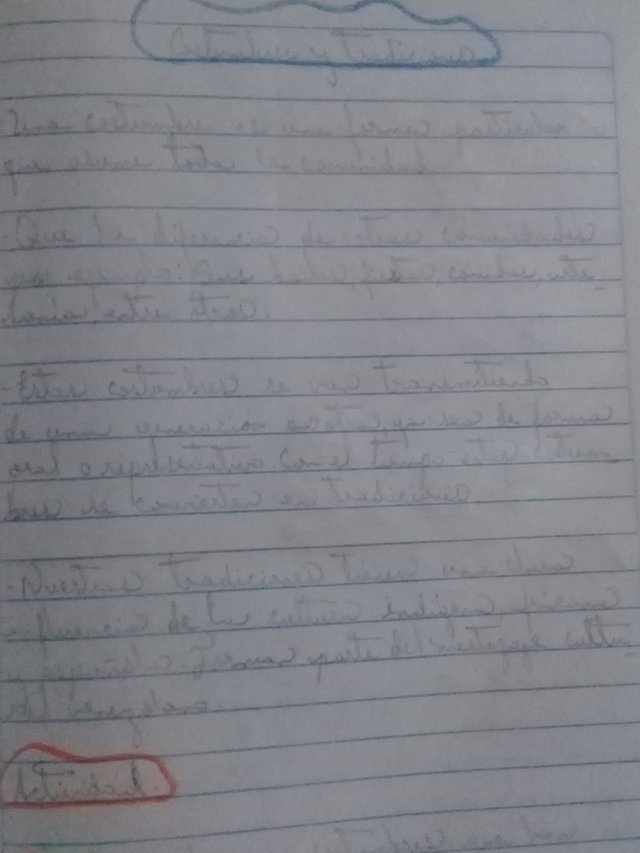 Costumbres y tradiciones
Una costumbre es una forma particular
que asume toda la comunidad.
Que la diferencia de otras comunidades
por ejemplo: Sus bailes, comidas, arte-
entre otras.
-Estas costumbres se van transmitiendo
de una generación a otra, ya sea de forma
oral o representativa. Con el tiempo estas costum-
bres se convierten en tradiciones.
-Nuestras tradiciones tienen una clara
influencia de las cultura indígena, africana
y española. Forman parte del mestizaje cultu-
ral venezolano.
Actividad.